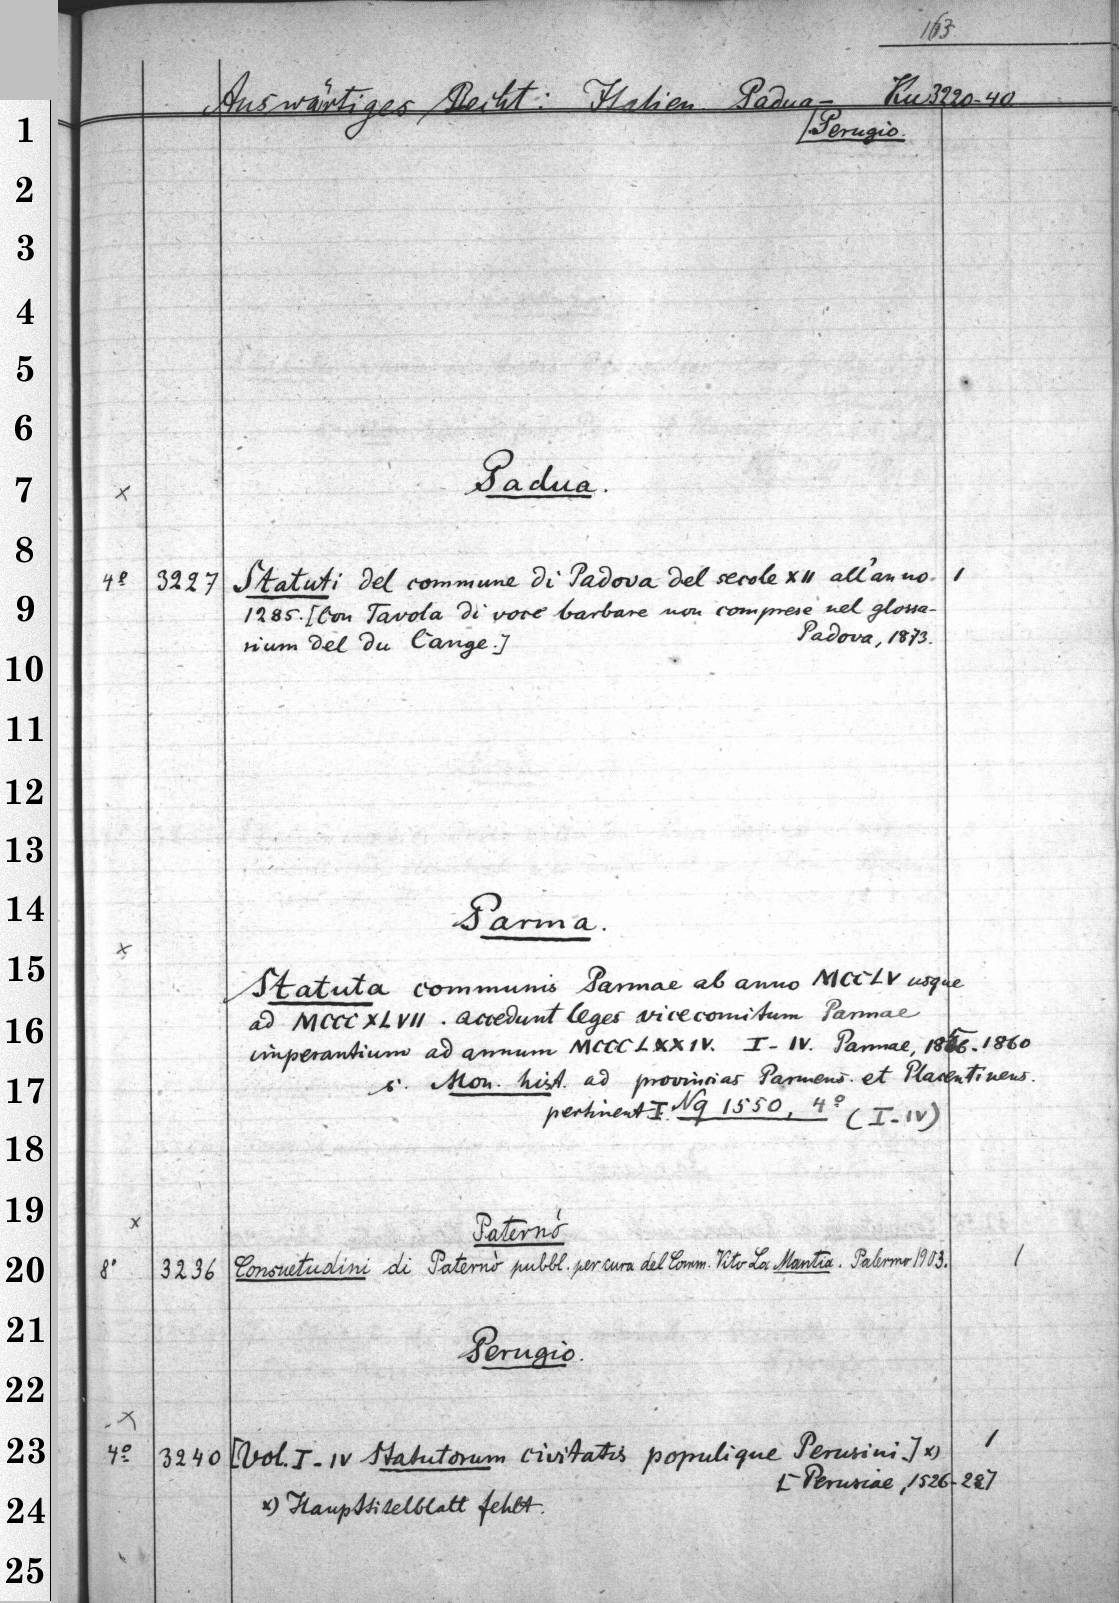 163
Auswärtiges Recht: Italien Padua- Ku 3220-40
Perugio.
1
2
3
4
5
6
7
8
9
10
11
12
13
14
15
16
17
18
19
20
21
22
23
24
25
x
Padua.
4º 3227 Statuti del commune di Padova del secole XII all'anno. 1
1285. [Con Tavola di voce barbare non comprese nel glossa-
rium del du Cange.] Padova, 1873.
Parma.
x
Statuta communis Parmae ab anno MCCLV usque
ad MCCCXLVII. accedunt leges vicecomitum Parmae
imperantium ad annum MCCCLXXIV. I-IV. Parmae, -1860
s. Mon. hist. ad provincias Parmens. et Placentinens.
pertinent I. Nq 1550, 4º (I-IV)
x
Paternò
8º 3236 Consuetudini di Paternò pubbl. per cura del Comm. Vito La Mantia. Palermo 1903. 1
Perugio.
x
4º 3240 [Vol. I-IV Statutorum civitatis populique Perusini.] x) 1
[Perusiae, 1526-28]
x) Haupttitelblatt fehlt.